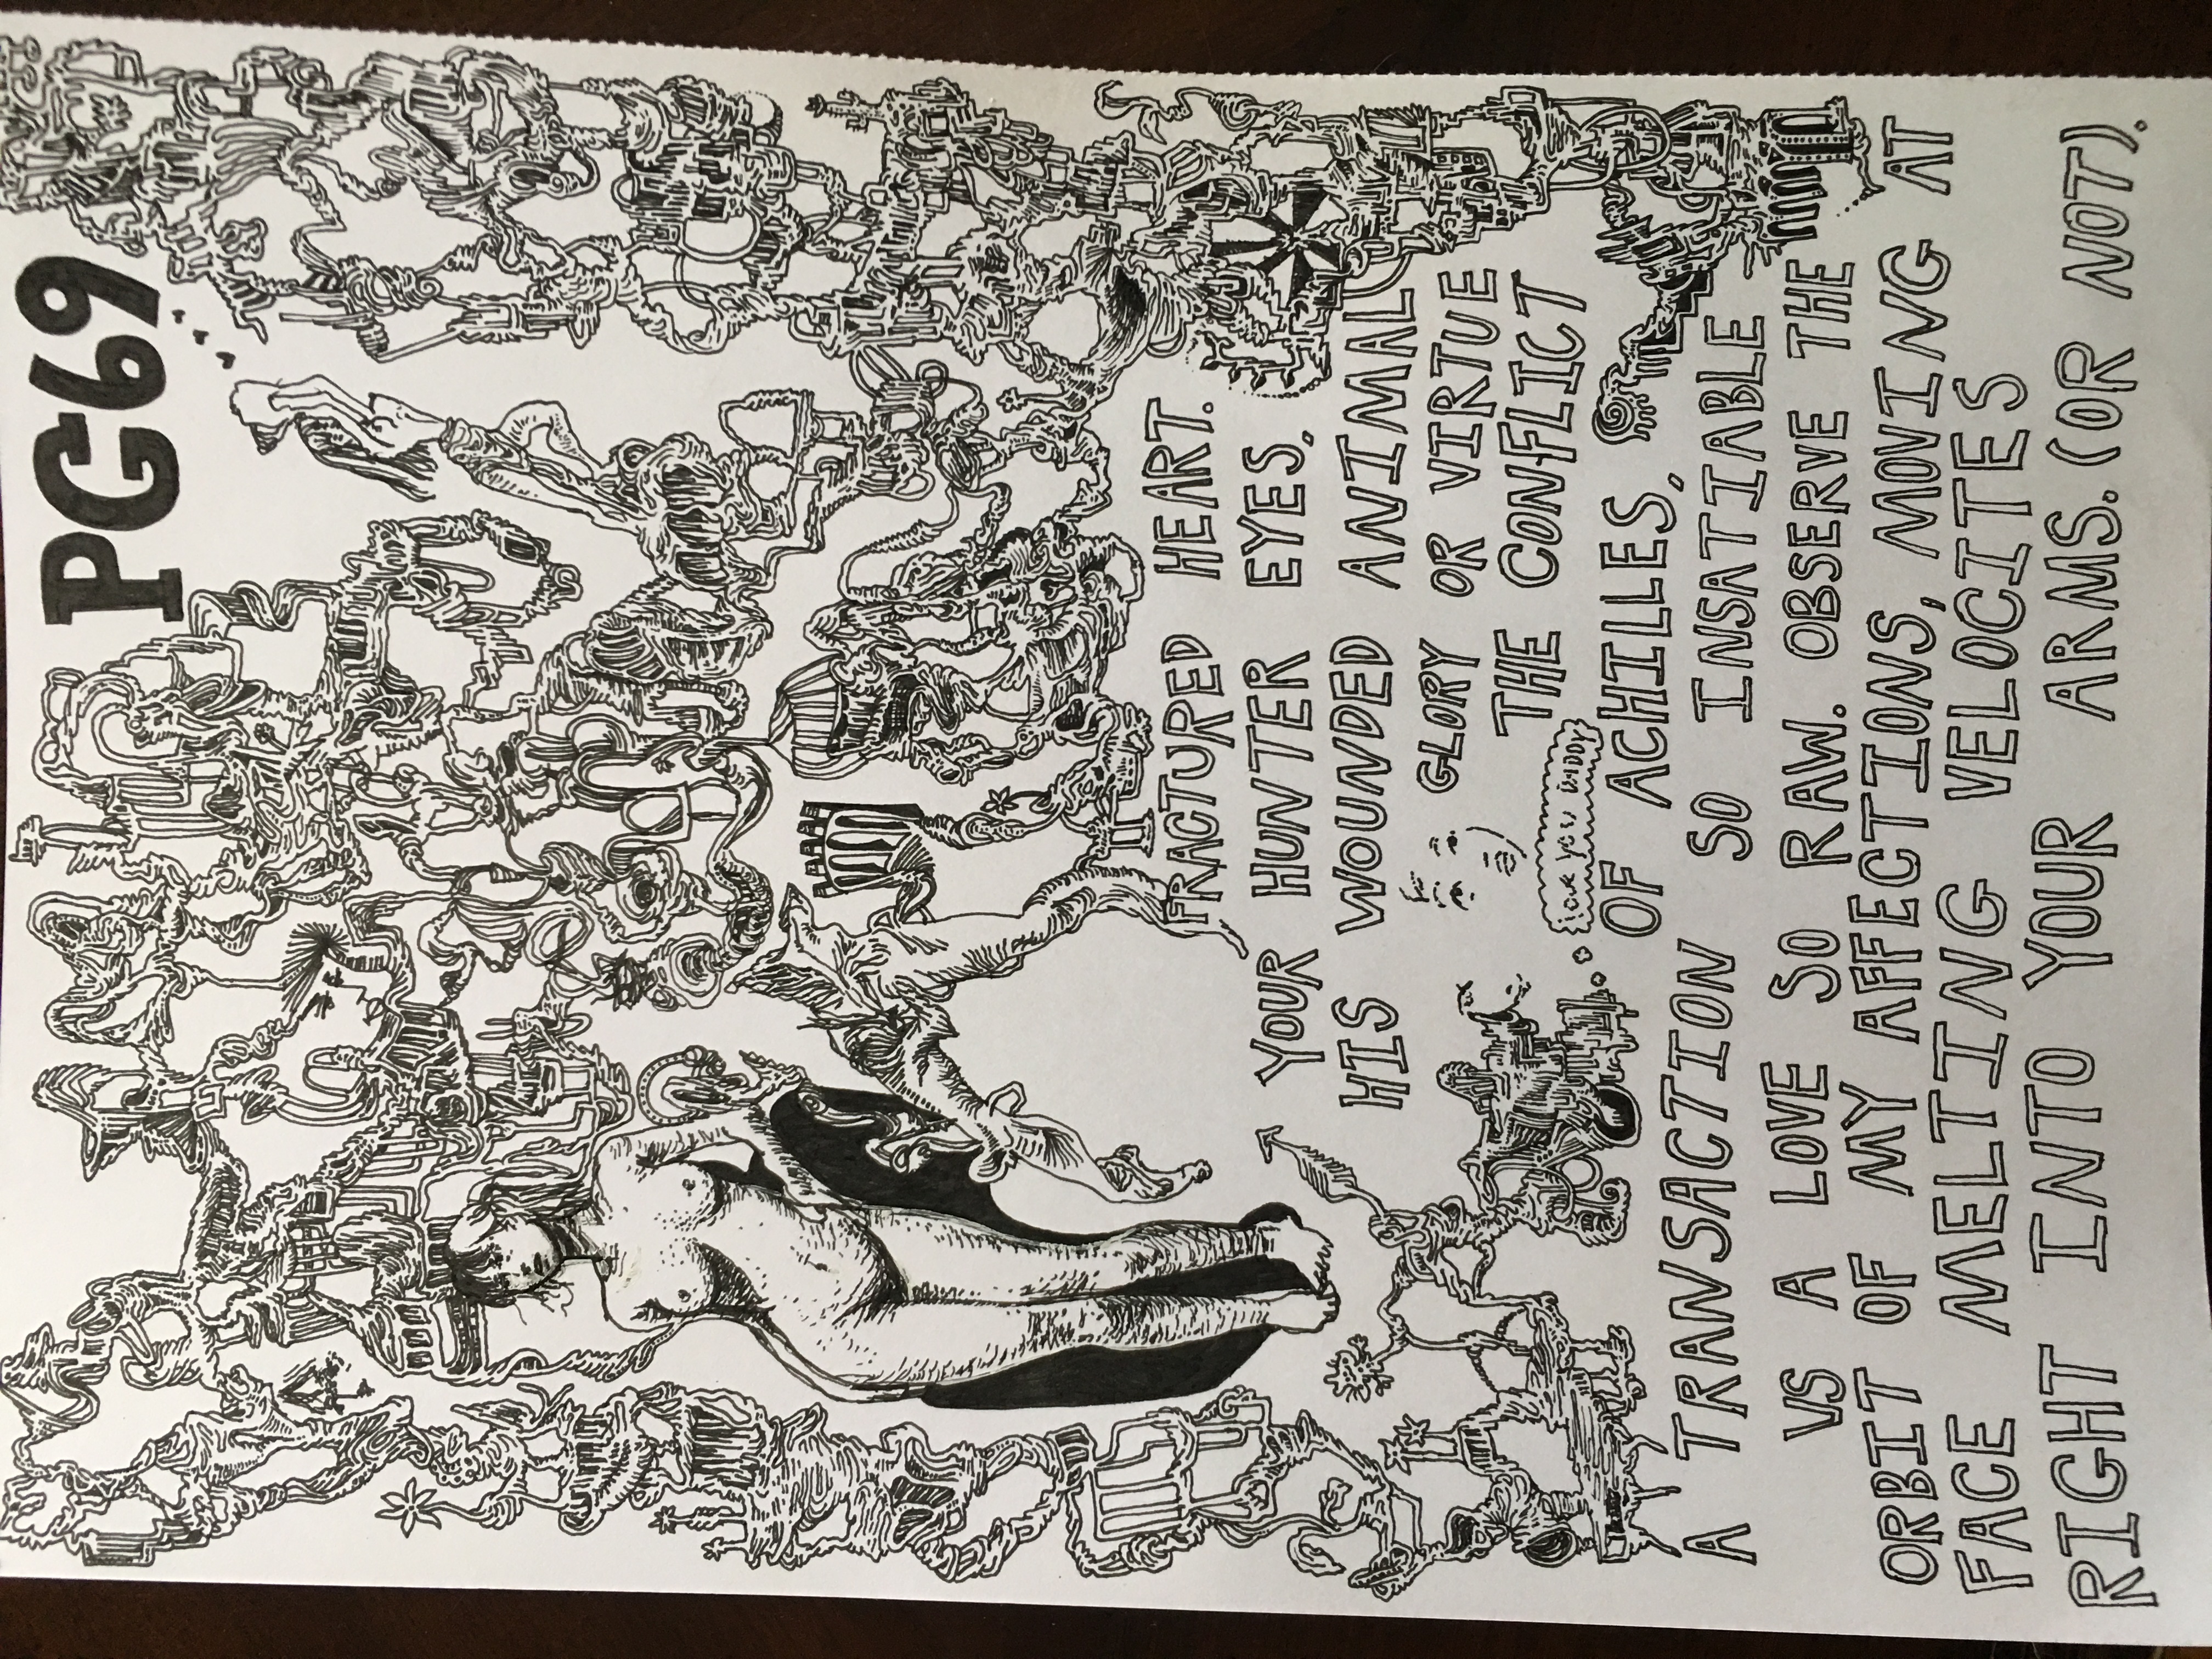 PG69
FRACTURED HEART.
YOUR HUNTER EYES,
HIS WOUNDED ANIMAL
GLORY OR VIRTUE
THE CONFLICT
you
OF ACHILLES,
A TRANSACTION SO INSATIABLE
VS A LOVE SO RAW. OBSERVE THE
ORBIT OF MY AFFECTIONS, MOVING AT
FACE MELTING VELOCITES
RIGHT INTO YOUR ARMS. (OR NOT).